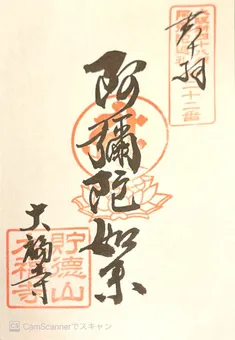 奉拝
阿彌陀如来
大福寺
貯徳山
大福寺
CamScannerでスキャン